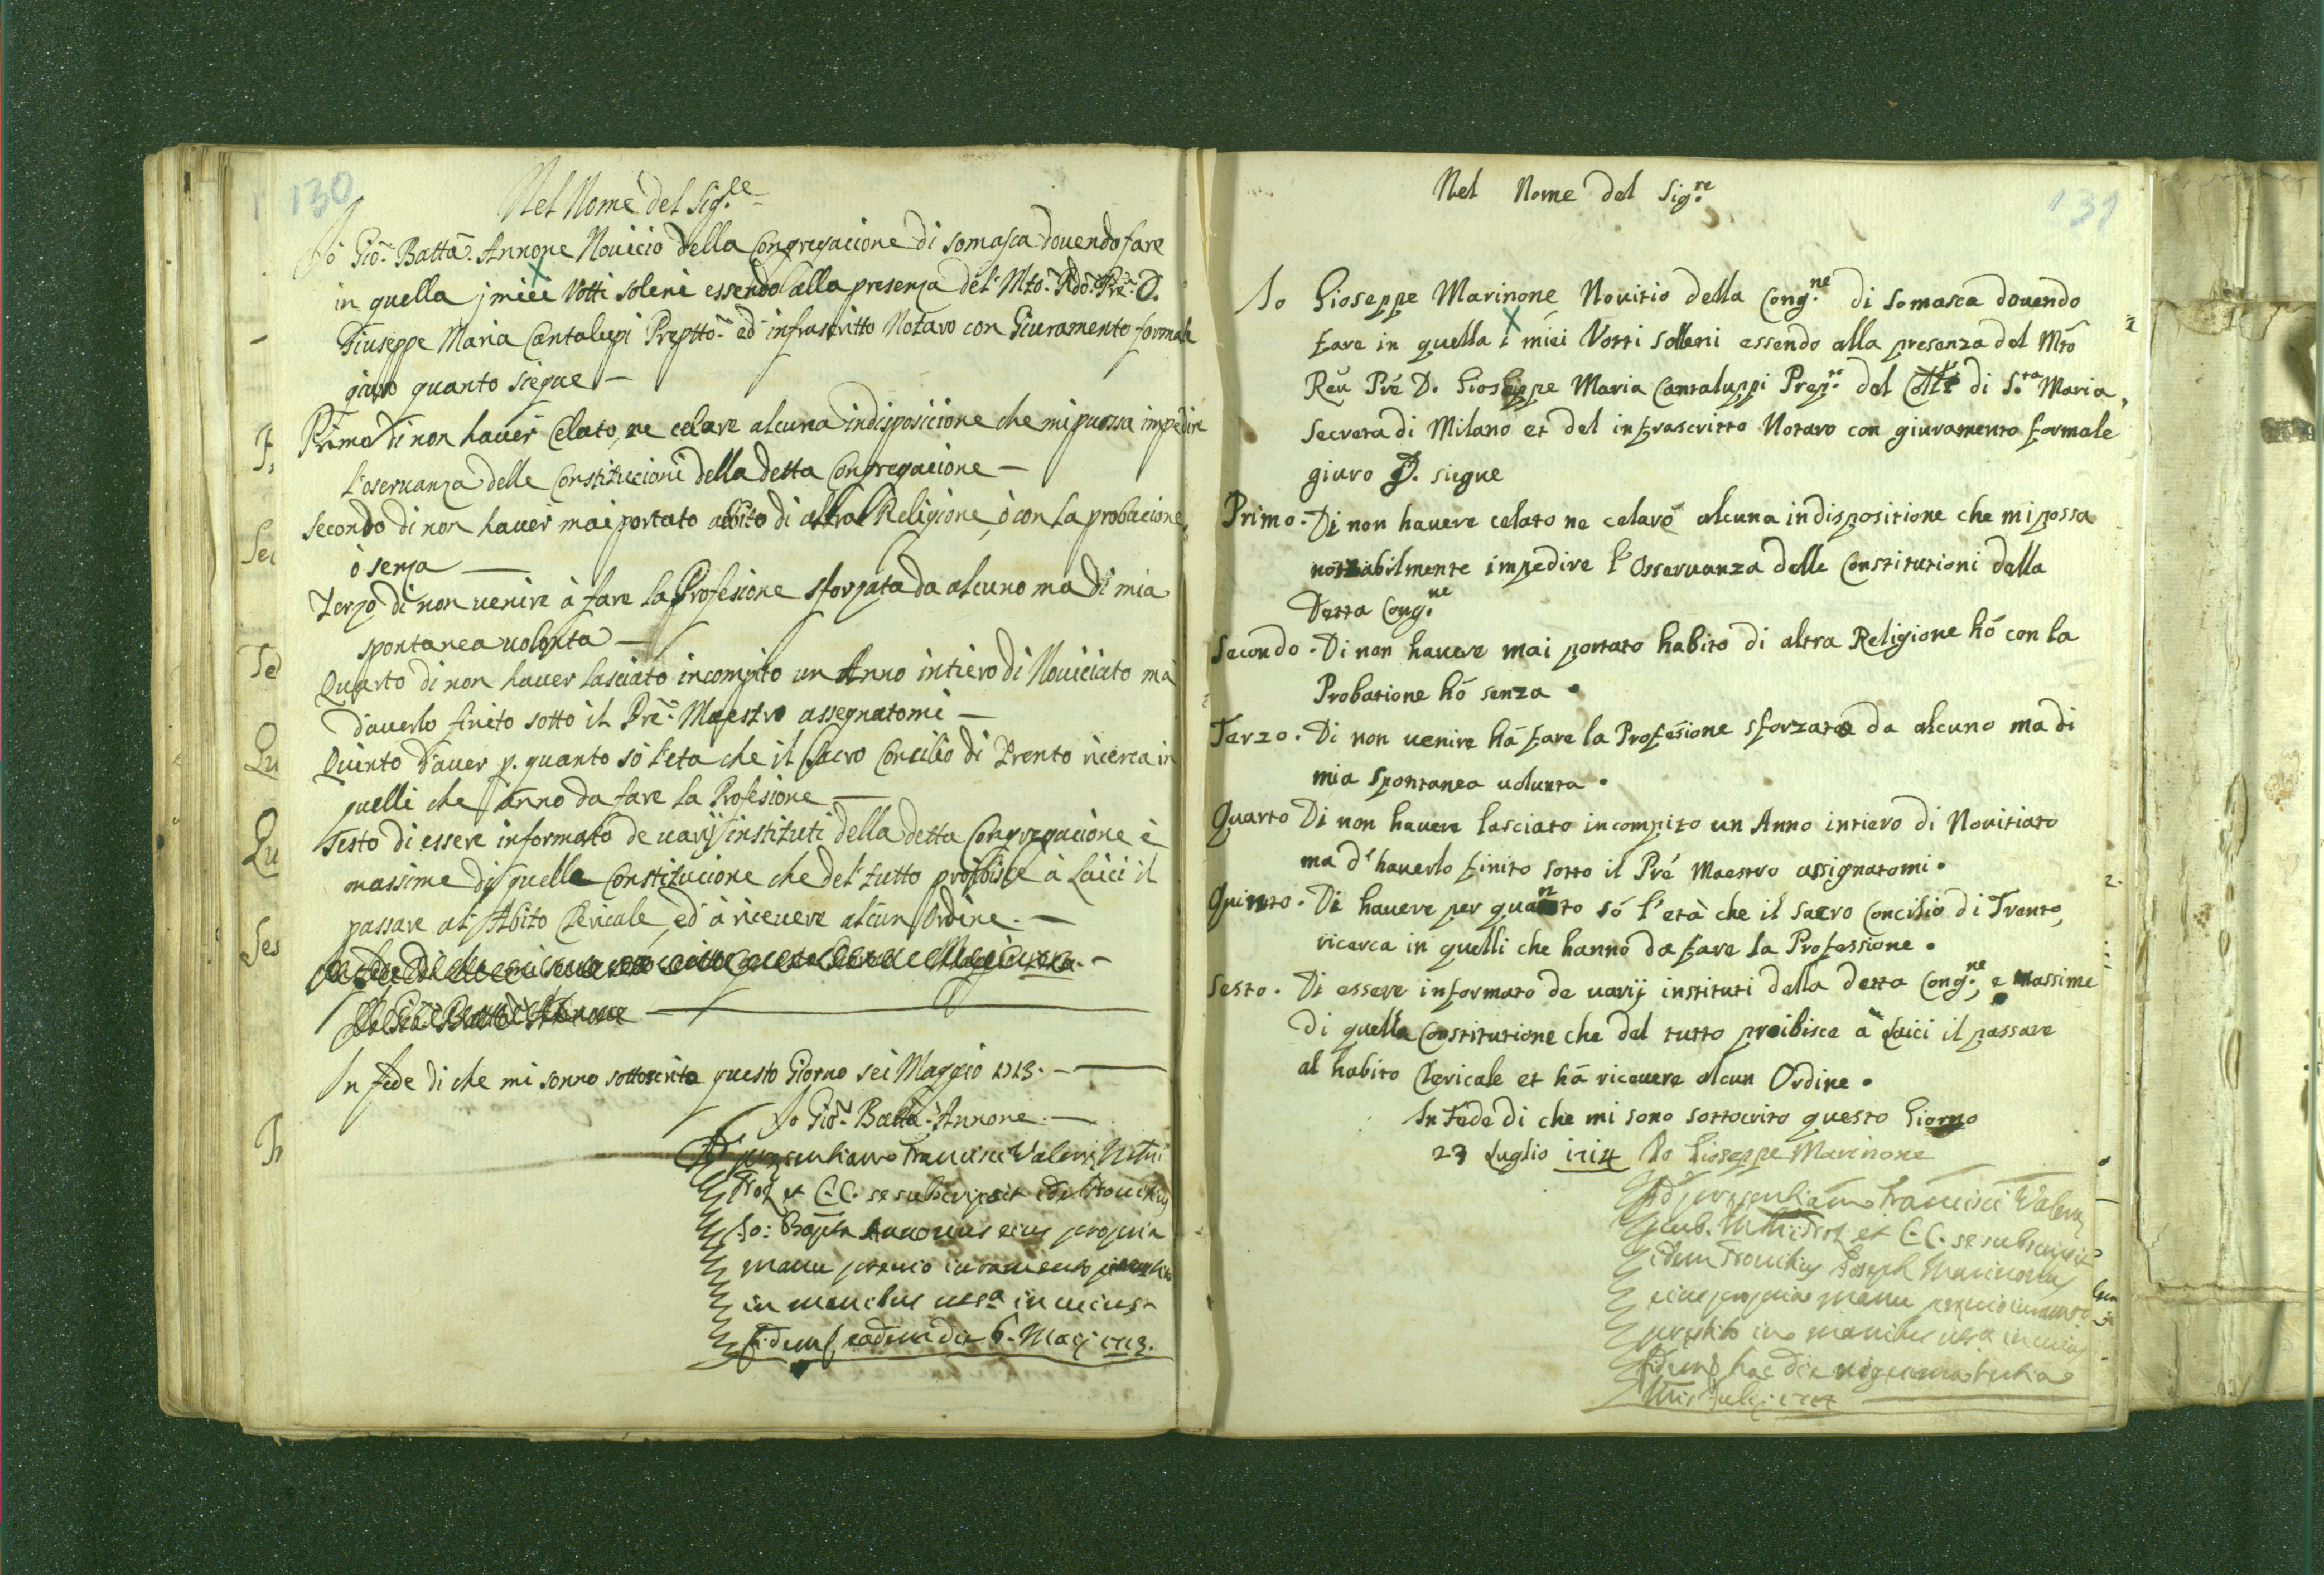 130
Nel Nome del Sig.re
Io Gio: Batta: Annone Novicio della Congregacione di Somasca dovendo fare
in quella j miei Votti soleni essendo alla presenza del Mto: Rdo: Pre: D.
Giuseppe Maria Cantalupi Preptto: ed infrascritto Notaro con Giuramento formale
giuro quanto siegue —
Primo di non haver Celato, ne celare alcuna indisposicione che mi possa impedire
l'oservanza delle Constitucioni della detta Congregacione —
Secondo di non haver mai portato abito di altra Religione, ò con la probacione,
ò senza —
Terzo di non venire à fare la Profesione sforzata da alcuno ma di mia
spontanea volonta —
Quarto di non haver lasciato incompito un Anno intiero di Noviciato mà
d'averlo finito sotto il Pre: Maestro assegnatomi —
Quinto d'aver p. quanto sò l'eta che il Sacro Concilio di Trento ricerca in
quelli che ànno da fare la Profesione —
Sesto di essere informato de varij instituti della detta Congregacione è
massime di quella Constitucione che del tutto proibisce à Laici il
passare al Abito Clericale, ed à ricevere alcun Ordine. —
Io Gio: Batta: Annone —
In fede di che mi sonno sottoscrito questo Giorno sei Maggio 1713. —
Io Gio: Batta: Annone. —
Ad presentiam Francisci Valerij Notrij
et C.C. se subscripsit idem Novitius
Io: Bapta Annonus eius propria
manu premio iuramento prestito
in manibus in cuius
fidem, eadem die 6. Maij 1713.
131
Nel Nome del Sig.re
Io Gioseppe Marinone Novitio della Cong.ne di Somasca dovendo
fare in quella i miei Votti solleni essendo alla presenza del Mto
Reu Pré D. Gioseppe Maria Cantaluppi Prep.to del Colle di S.ta Maria
Secreta di Milano et del infrascritto Notaro con giuramento formale
giuro Q. siegue
Primo. Di non havere celato ne celaro alcuna indispositione che mi possa
nottabilmente impedire l'Osservanza delle Constitutioni della
Detta Cong.ne
Secondo. Di non havere mai portato habito di altra Religione hó con la
Probatione hó senza.
Terzo. Di non venire há fare la Profesione sforzato da alcuno ma di
mia spontanea volunta.
Quarto Di non havere lasciato incompito un Anno intiero di Novitiato
ma d'haverlo finito sotto il Pré Maestro assignatomi.
Quinto. Di havere per quanto só l'età che il Sacro Concilio di Trento,
ricerca in quelli che hanno da fare la Professione.
Sesto. Di essere informato de varij instituti della detta Cong.ne, e massime
di quella Constitutione che del tutto proibisce à Laici il passare
al habito Clericale et há ricevere alcun Ordine.
In Fede di che mi sono sottocrito questo Giorno
23 Luglio 1714 Io Gioseppe Marinone
Ad presentiam Francisci Valerij
pub. et C.C. se subscripsit
idem Novitius Joseph Marinonus
eius propria manu premio iuramto
prestito in manibus in cuius
fidem hac die vigesima tertia
Julij 1714